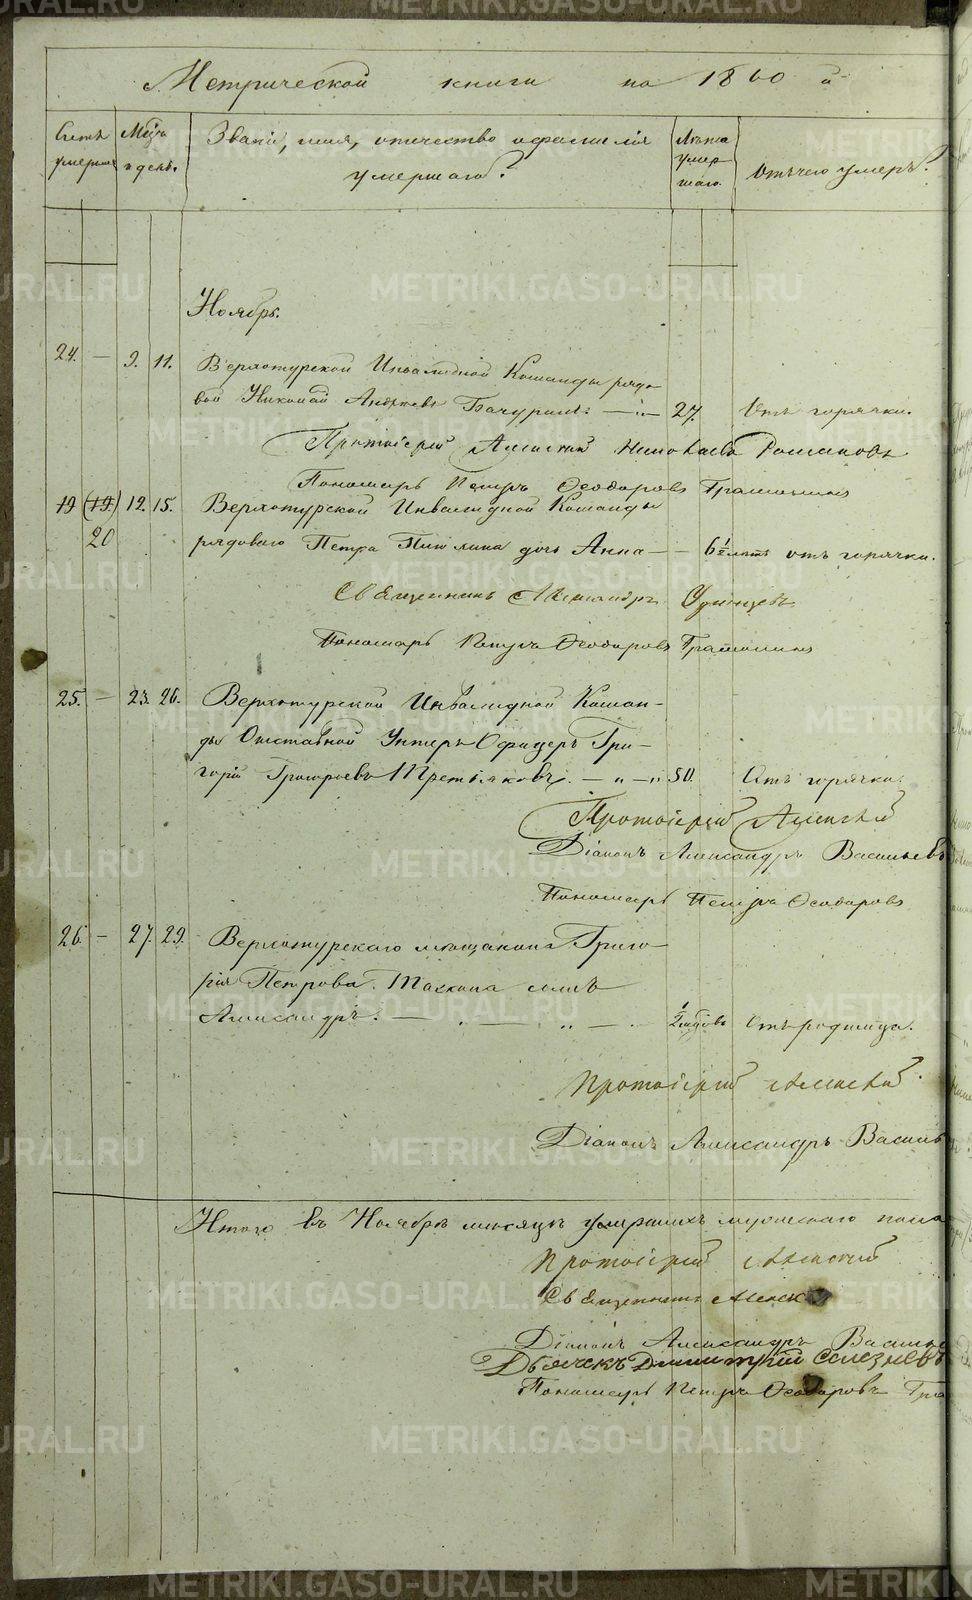 Метрической книги на 1860 й
Счетъ умершихъ
Мѣсяцъ и день.
Званіе, имя, отчество и фамилія умершаго?
Лѣта умершаго.
Отъ чего умеръ?
Ноябрь.
24. — 9. 11. Верхотурской Инвалидной Команды рядо-
вой Николай Андреевъ Бачуринъ — „ — 27. Отъ горячки.
Протоіерей Алексій Николаевъ Романовъ
Пономарь Петръ Ѳеодоровъ
19 (19) 12. 15. Верхотурской Инвалидной Команды
20 рядоваго Петра дочь Анна — — 6½ лѣтъ отъ горячки.
Священникъ Александръ Удинцевъ
Пономарь Петръ Ѳеодоровъ
25. — 23. 26. Верхотурской Инвалидной Коман-
ды Отставной Унтеръ Офицеръ Гри-
горій Григорьевъ Третьяковъ. — „ — „ 50. Отъ горячки.
Протоіерей Алексій
Діаконъ Александръ Васильевъ
Пономарь Петръ Ѳеодоровъ
26. — 27. 29. Верхотурскаго мѣщанина Григо-
рія Петрова сынъ
Александръ. — „ — „ — ½ годовъ Отъ родимца.
Протоіерей Алексій
Діаконъ Александръ Василь
Итого въ Ноябрѣ мѣсяцѣ умершихъ мужескаго пола
Протоіерей Алексій
Священникъ Алекс
Діаконъ Александръ Василье
Дьячекъ Димитрій Селезневъ
Пономарь Петръ Ѳеодоровъ
METRIKI.GASO-URAL.RU